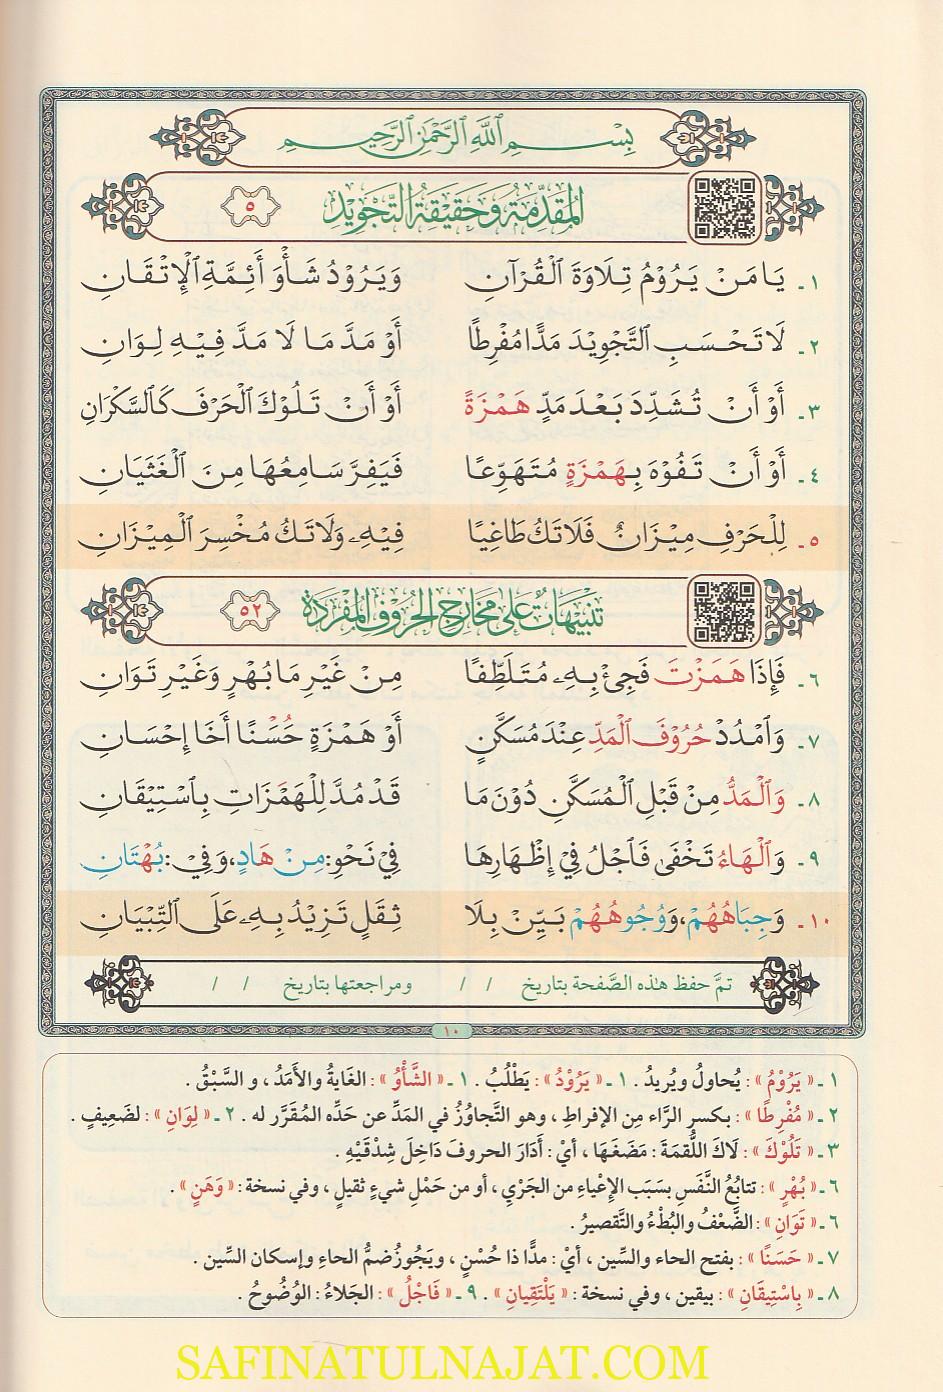 بِسْمِ ٱللَّهِ ٱلرَّحْمَٰنِ ٱلرَّحِيمِ
المُقَدِّمَةُ وَحَقِيقَةُ التَّجْوِيدِ ٥
١- يَا مَنْ يَرُوْمُ تِلَاوَةَ الْقُرْآنِ وَيَرُوْدُ شَأْوَ أَئِمَّةِ الْإِتْقَانِ
٢- لَا تَحْسَبِ التَّجْوِيْدَ مَدًّا مُفْرِطًا أَوْ مَدَّ مَا لَا مَدَّ فِيْهِ لِوَانِ
٣- أَوْ أَنْ تُشَدِّدَ بَعْدَ مَدٍّ هَمْزَةً أَوْ أَنْ تَلُوْكَ الْحَرْفَ كَالسَّكْرَانِ
٤- أَوْ أَنْ تَفُوْهَ بِهَمْزَةٍ مُتَهَوِّعًا فَيَفِرَّ سَامِعُهَا مِنَ الْغَثَيَانِ
٥- لِلْحَرْفِ مِيْزَانٌ فَلَا تَكُ طَاغِيًا فِيْهِ وَلَا تَكُ مُخْسِرَ الْمِيْزَانِ
تَنْبِيْهَاتٌ عَلَى مَخَارِجِ الحُرُوْفِ المُفْرَدَةِ ٥٢
٦- فَإِذَا هَمَزْتَ فَجِئْ بِهِ مُتَلَطِّفًا مِنْ غَيْرِ مَا بُهْرٍ وَغَيْرِ تَوَانِ
٧- وَامْدُدْ حُرُوْفَ الْمَدِّ عِنْدَ مُسَكَّنٍ أَوْ هَمْزَةٍ حُسْنًا أَخَا إِحْسَانِ
٨- وَالْمَدُّ مِنْ قَبْلِ الْمُسَكَّنِ دُوْنَ مَا قَدْ مُدَّ لِلْهَمَزَاتِ بِاسْتِيْقَانِ
٩- وَالْهَاءُ تَخْفَى فَاجْلُ فِيْ إِظْهَارِهَا فِيْ نَحْوِ: مِنْ هَادٍ، وَفِيْ: بُهْتَانِ
١٠- وَجِبَاهُهُمْ، وَوُجُوهُهُمْ بَيِّنْ بِلَا ثِقَلٍ تَزِيْدُ بِهِ عَلَى التِّبْيَانِ
تمَّ حفظ هذه الصَّفحة بتاريخ / / ومراجعتها بتاريخ / /
١٠
١- « يَرُوْمُ » : يُحاولُ ويُريدُ . ١- « يَرُوْدُ » : يَطْلُبُ . ١- « الشَّأْوُ » : الغَايةُ والأَمَدُ ، و السَّبْقُ .
٢- « مُفْرِطًا » : بكسر الرَّاء مِن الإفراطِ ، وهو التَّجاوُزُ في المَدِّ عن حَدِّه المُقَرَّر له . ٢- « لِوَانِ » : لضَعِيفٍ .
٣- « تَلُوْكَ » : لَاكَ اللُّقمَةَ : مَضَغَهَا ، أيْ : أَدَارَ الحروفَ دَاخِلَ شِدْقَيْهِ .
٦- « بُهْرٍ » : تتابُعُ النَّفَسِ بسَبَبِ الإِعْياءِ من الجَرْيِ ، أو من حَمْلِ شيءٍ ثقيلٍ ، وفي نسخة : « وَهَنٍ » .
٦- « تَوَانِ » : الضَّعْفُ والبُطْءُ والتَّقصيرُ .
٧- « حَسَنًا » : بفتح الحاء والسِّين ، أيْ : مدًّا ذا حُسْنٍ ، ويَجُوزُ ضمُّ الحاءِ وإسكان السِّين .
٨- « بِاسْتِيقَانِ » : بيقين ، وفي نسخة : « يَلْتَقِيانِ » . ٩- « فَاجْلُ » : الجَلاءُ : الوُضُوحُ .
SAFINATULNAJAT.COM